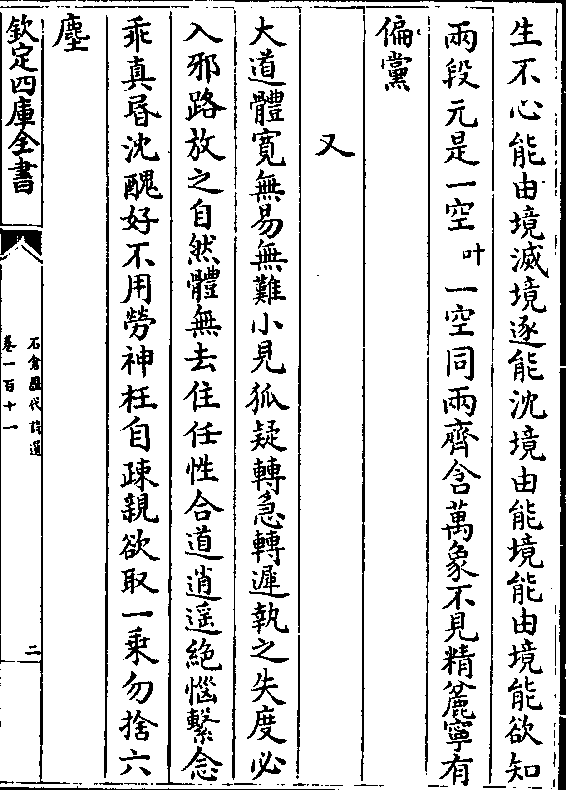 生不心能由境滅境逐能沈境由能境能由境能欲知
兩段元是一空叶一空同兩齊含萬象不見精麄寧有
偏黨
又
大道體寛無易無難小見狐疑轉急轉遲執之失度必
入邪路放之自然體無去住任性合道逍遥絶惱繫念
乖真昬沈醜好不用勞神枉自疎親欲取一乘勿捨六
塵
欽定四庫全書
石倉歷代詩選
卷一百十一
二